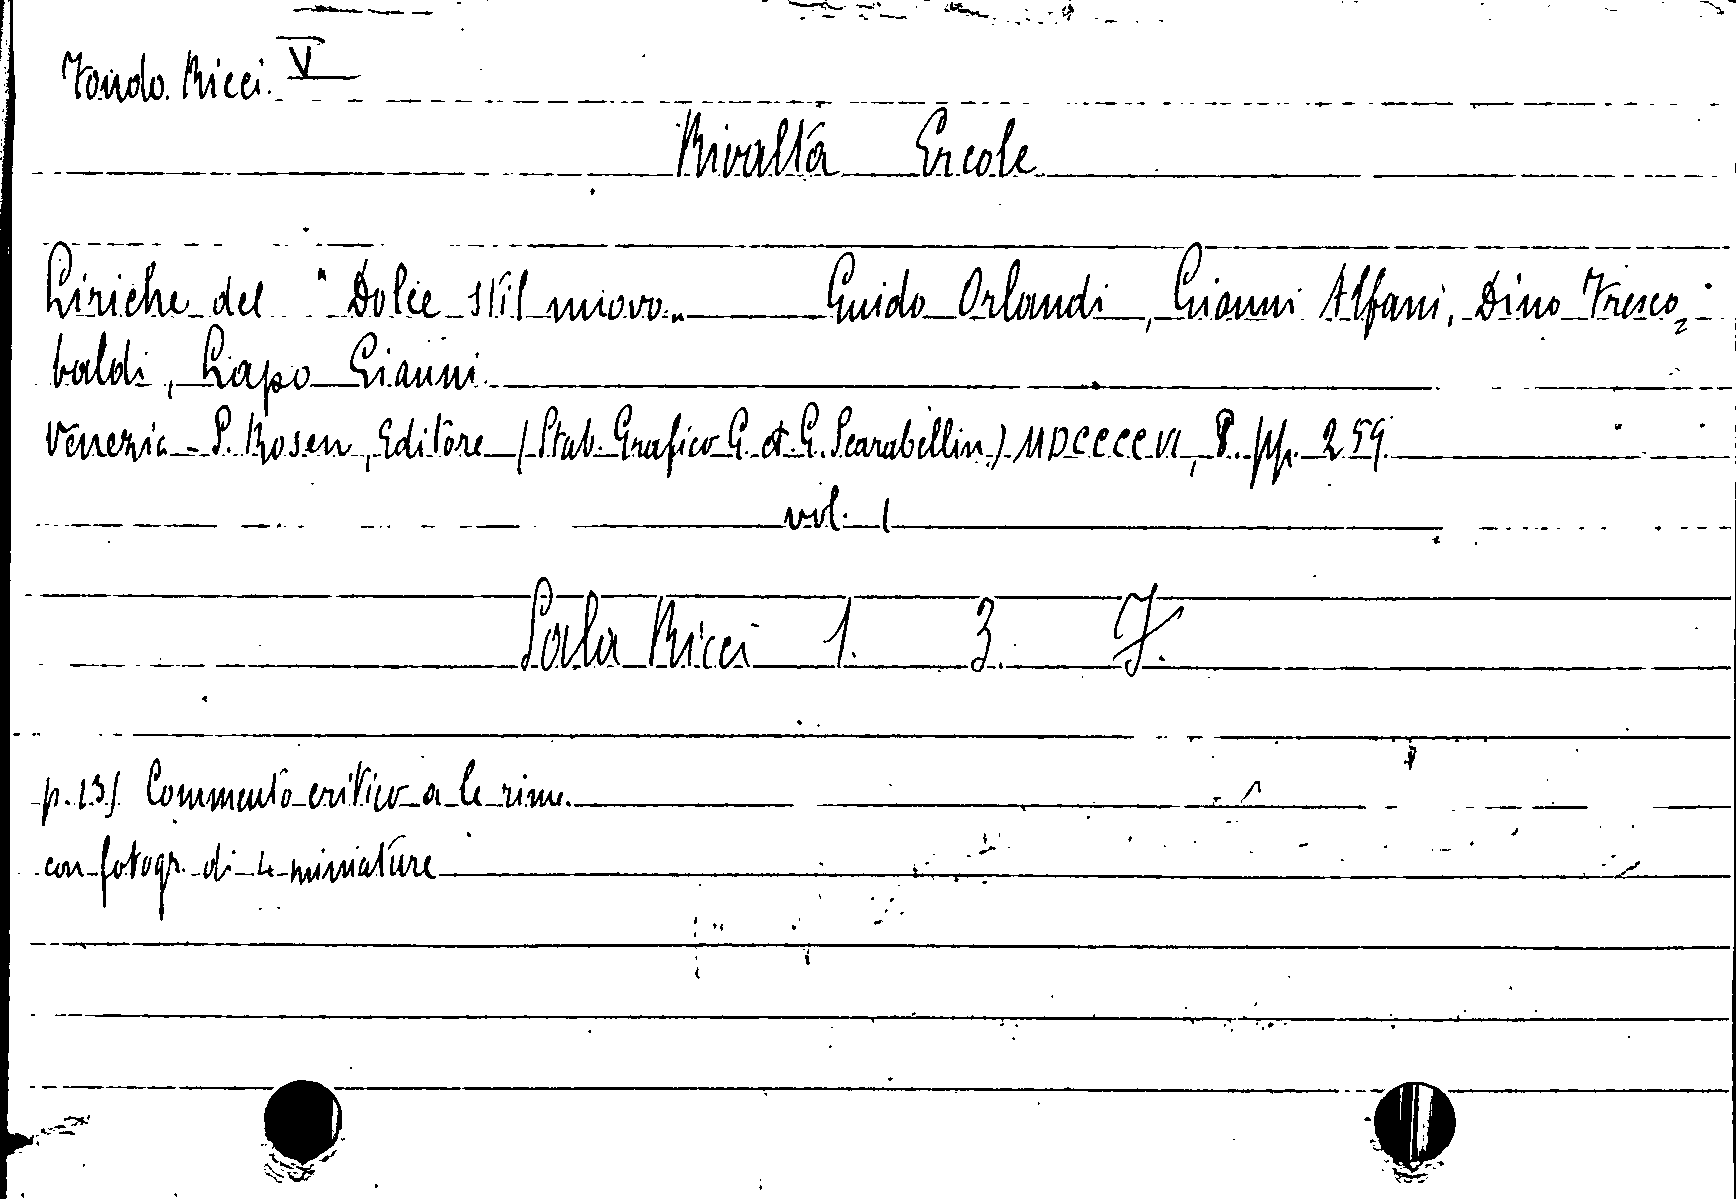 Fondo Ricci. V
Rivalta Ercole
Liriche del "Dolce stil nuovo„ Guido Orlandi, Gianni Alfani, Dino Fresco=
baldi, Lapo Gianni.
Venezia - P. Rosen, Editore (Stab. Grafico G. et. G. Scarabellin) MDCCCCVI, 8. pp. 259.
vol. 1
Sala Ricci 1. 3. 7.
p. 13/ Commento critico a le rime.
con fotogr. di 4 miniature